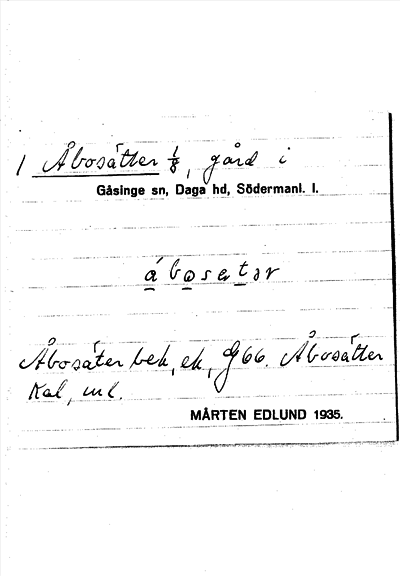 1 Åbosätter 1/8, gård i
Gåsinge sn, Daga hd, Södermanl. l.
åbosetər
Åbosäter bek, ek, G66. Åbosätter
Kal, ml.
MÅRTEN EDLUND 1935.